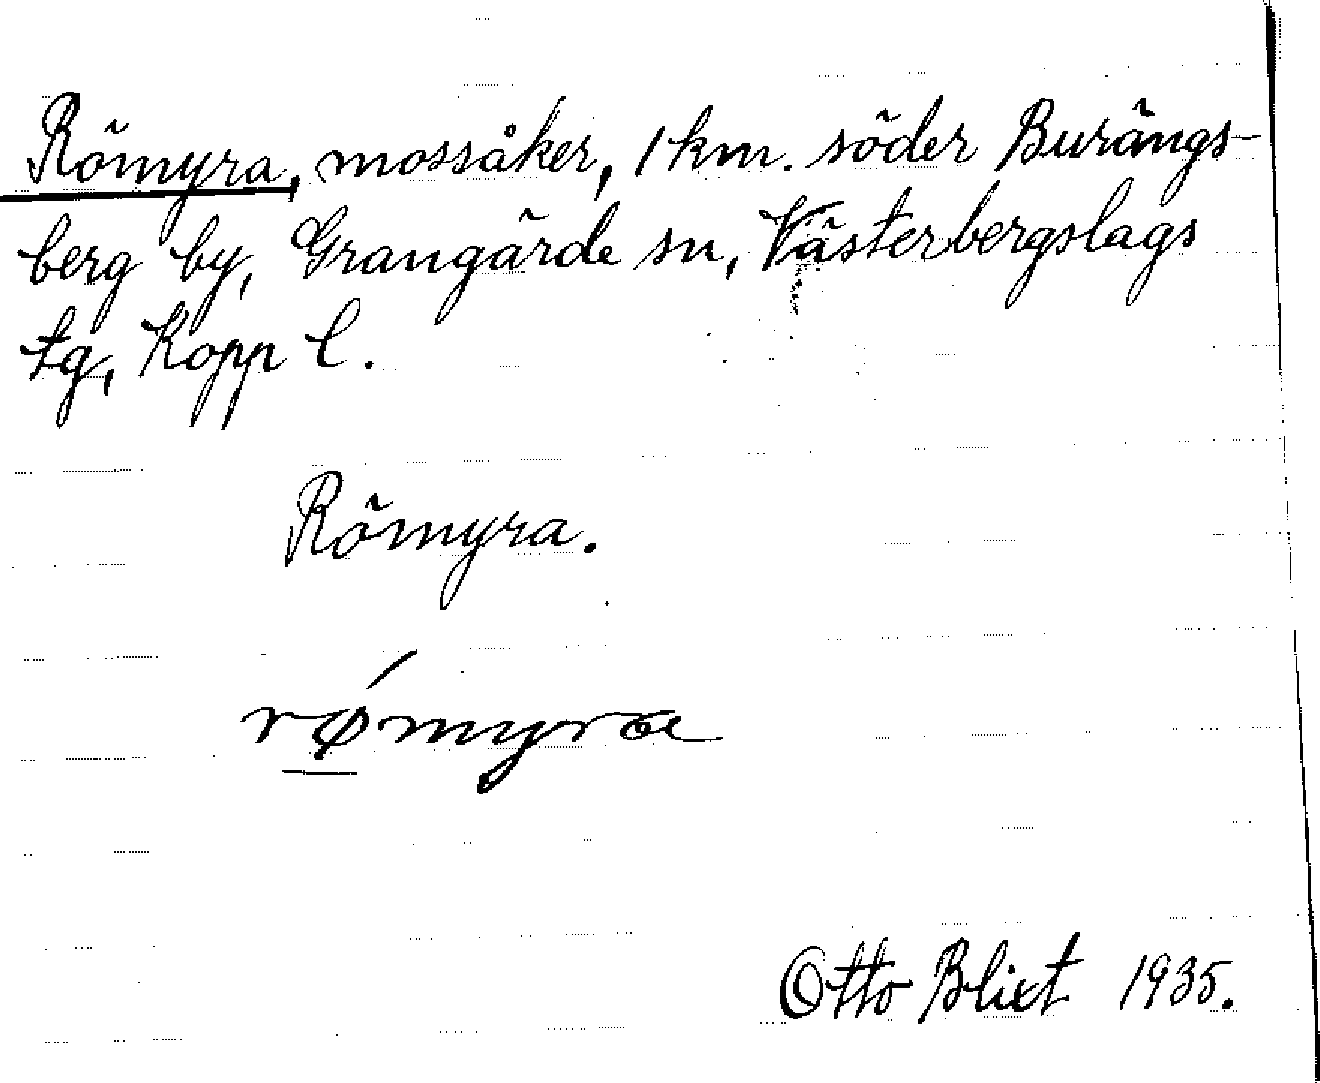 Römyra, mossåker, 1 km. söder Burängs-
berg by, Grangärde sn, Västerbergslags
tg, Kopp l.
Römyra.
rǿmyra
Otto Blixt 1935.